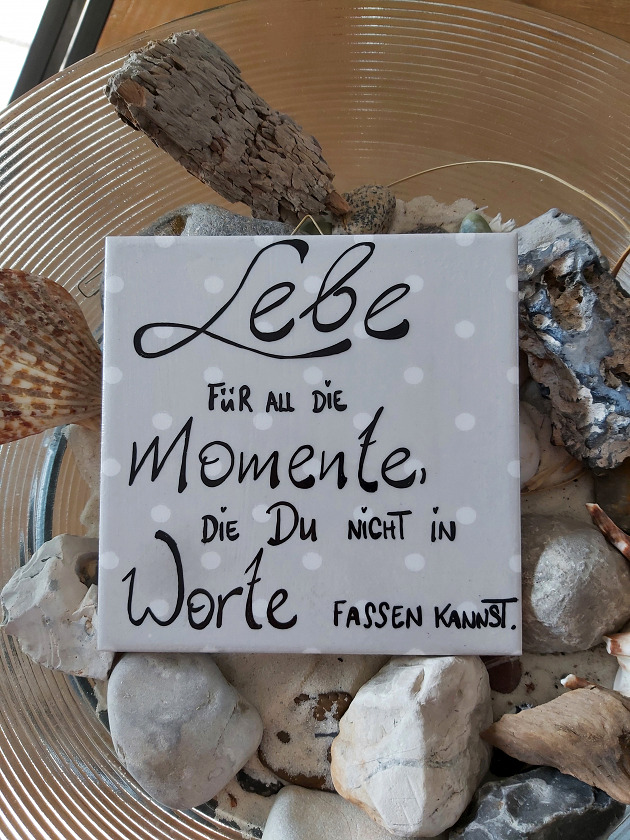 Lebe
FüR ALL DiE
Momente,
DiE Du NiCHT iN
Worte FASSEN KANNST.